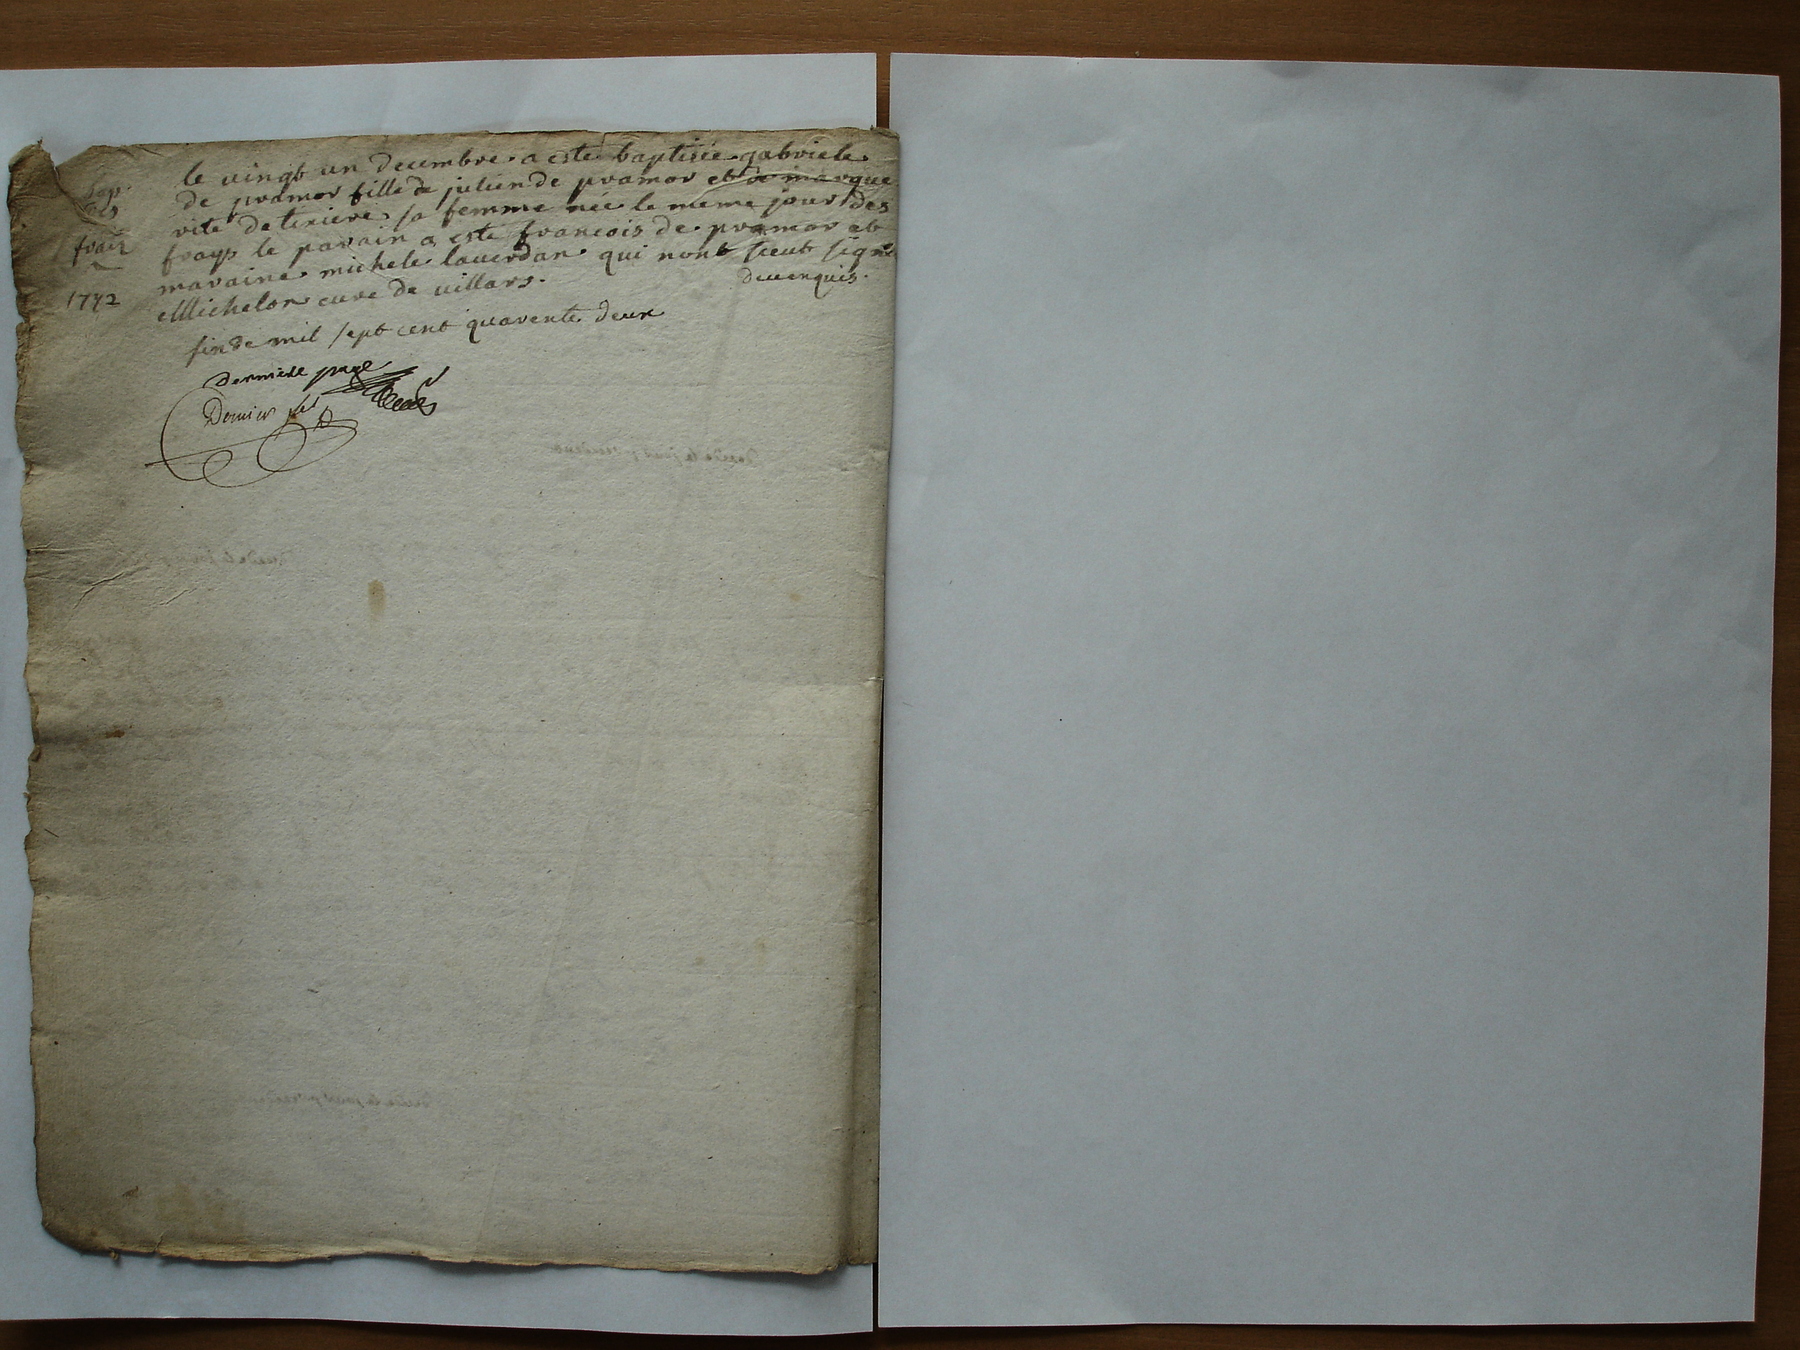 le vingt un decembre a este baptisée gabriele
de pramor fille de julien de pramor et de margue
rite de teriere sa femme née le meme jour des
frays le parain a este francois de pramor et
maraine michele lauerdan qui nont sceut signé
de ce enquis.
Michelon curé de villars.
fin de mil sept cent quarente deux
bap.
des
frais
1742
derniere page
Dernier